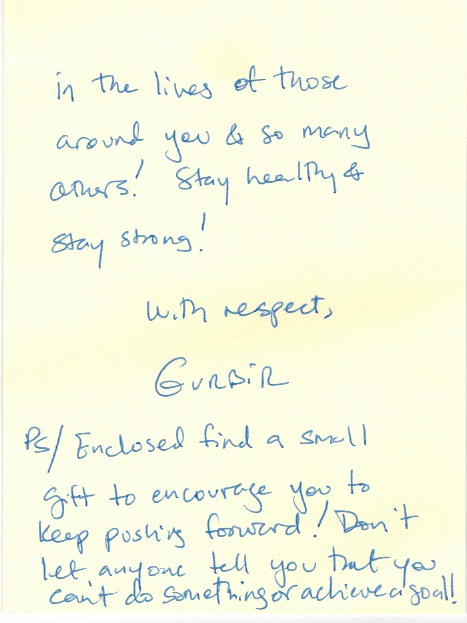 in the lives of those
around you & so many
others! Stay healthy &
stay strong!
With respect,
GURBIR
PS/ Enclosed find a small
gift to encourage you to
keep pushing forward! Don't
let anyone tell you that you
can't do something or achieve a goal!